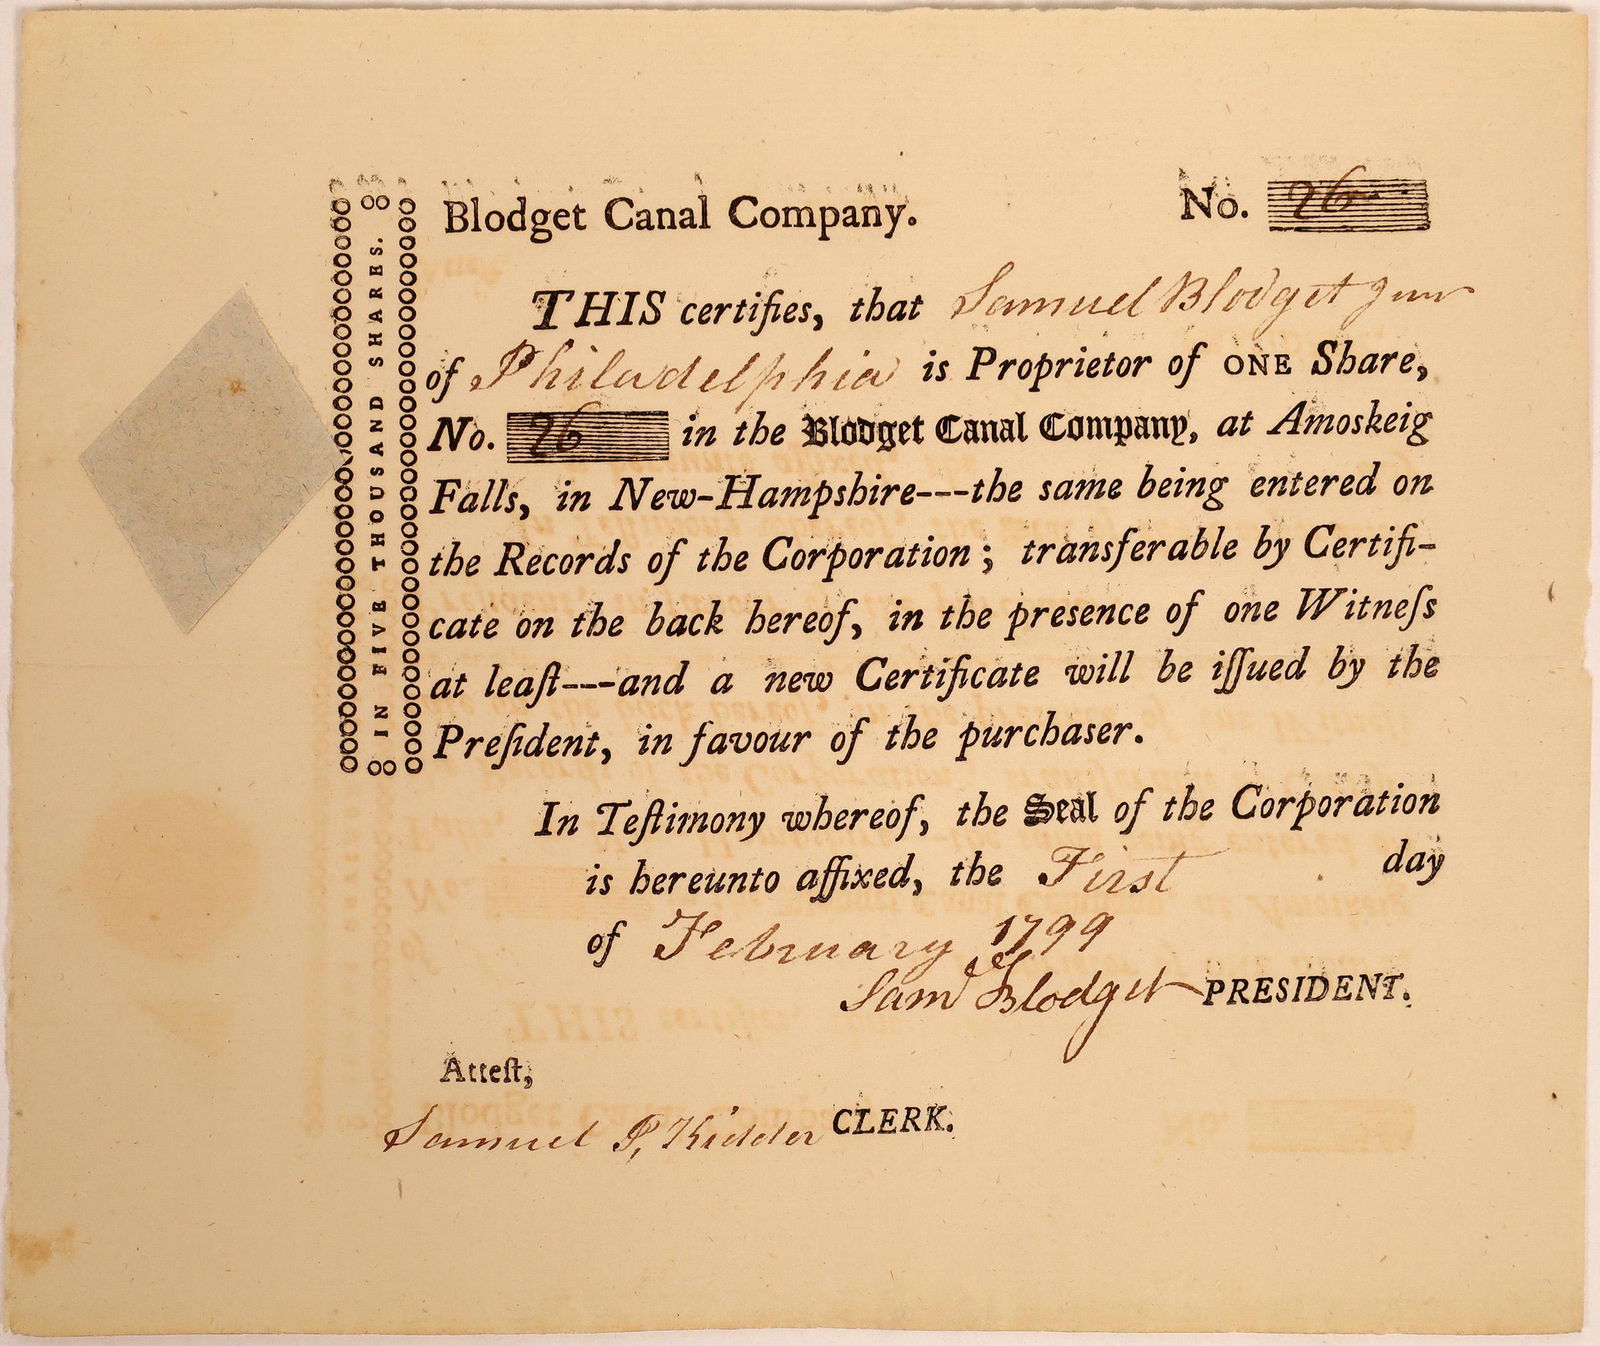 IN FIVE THOUSAND SHARES.
Blodget Canal Company. No. 26
THIS certifies, that Samuel Blodget Junr
of Philadelphia is Proprietor of ONE Share,
No. 26 in the Blodget Canal Company, at Amoskeig
Falls, in New-Hampshire---the same being entered on
the Records of the Corporation; transferable by Certifi-
cate on the back hereof, in the presence of one Witneſs
at leaſt---and a new Certificate will be iſſued by the
Preſident, in favour of the purchaser.
In Teſtimony whereof, the Seal of the Corporation
is hereunto affixed, the First day
of February 1799
Saml Blodget PRESIDENT.
Atteſt,
Samuel P, Kidder CLERK.